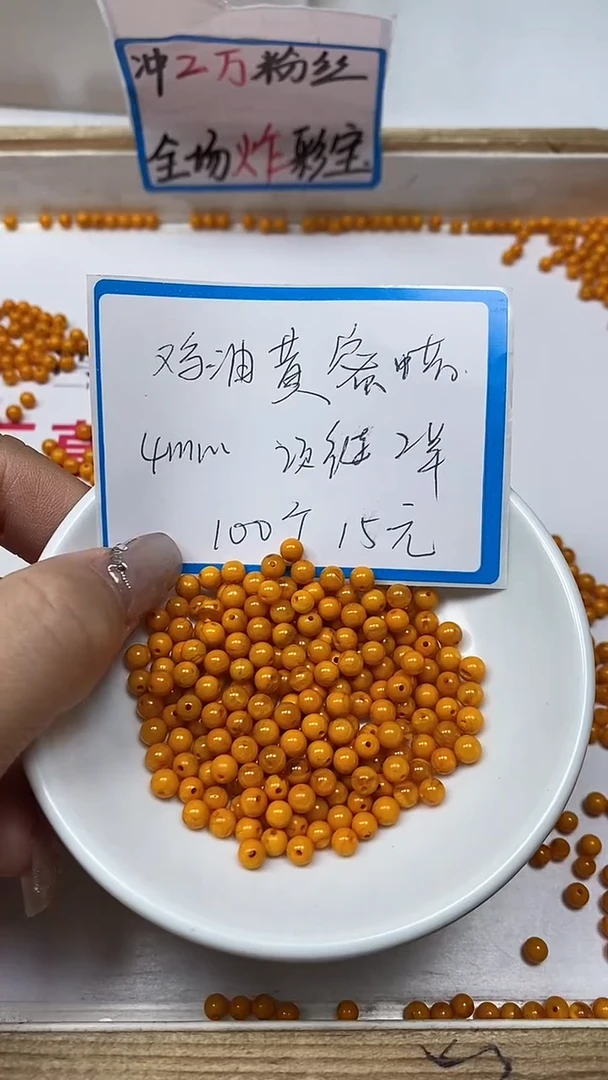 冲2万粉丝
全场炸彩宝
鸡油黄蜜蜡
4mm 项链2半
100个 15元